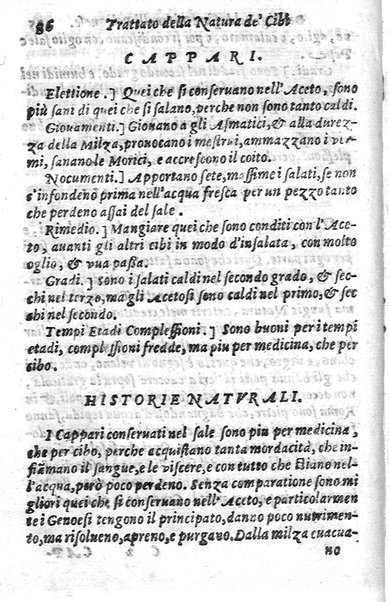 86 Trattato della Natura de' Cibi
CAPPARI.
Elettione.] Quei che si conseruano nell'Aceto, sono
più sani di quei che si salano, perche non sono tanto caldi.
Giouamenti.] Giouano a gli Asmatici, & alla durez-
za della Milza, prouotano i mestrui, ammazzano i ver-
mi, sanano le Morici, e accrescono il coito.
Nocumenti.] Apportano sete, massime i salati, se non
s'infondeno prima nell'acqua fresca per un pezzo tanto
che perdeno assai del sale.
Rimedio.] Mangiare quei che sono conditi con l'Ace-
to, auanti gli altri cibi in modo d'insalata, con molto
oglio, & vua passa.
Gradi.] sono i salati caldi nel secondo grado, & sec-
chi nel terzo, ma gli Acetosi sono caldi nel primo, & sec
chi nel secondo.
Tempi Etadi Complessioni.] Sono buoni per i tempi
etadi, complessioni fredde, ma piu per medicina, che per
cibo.
HISTORIE NATVRALI.
I Cappari conseruati nel sale sono piu per medicina,
che per cibo, perche acquistano tanta mordacità, che in-
fiãmano il sangue, e le viscere, e con tutto che stiano nel-
l'acqua, però poco perdeno. Senza comparatione sono mi
gliori quei che si conseruano nell'Aceto, e particolarmen
te i Genoesi tengono il principato, danno poco nutrimen-
to, ma risolueno, apreno, e purgano. Dalla milza euacua-
no